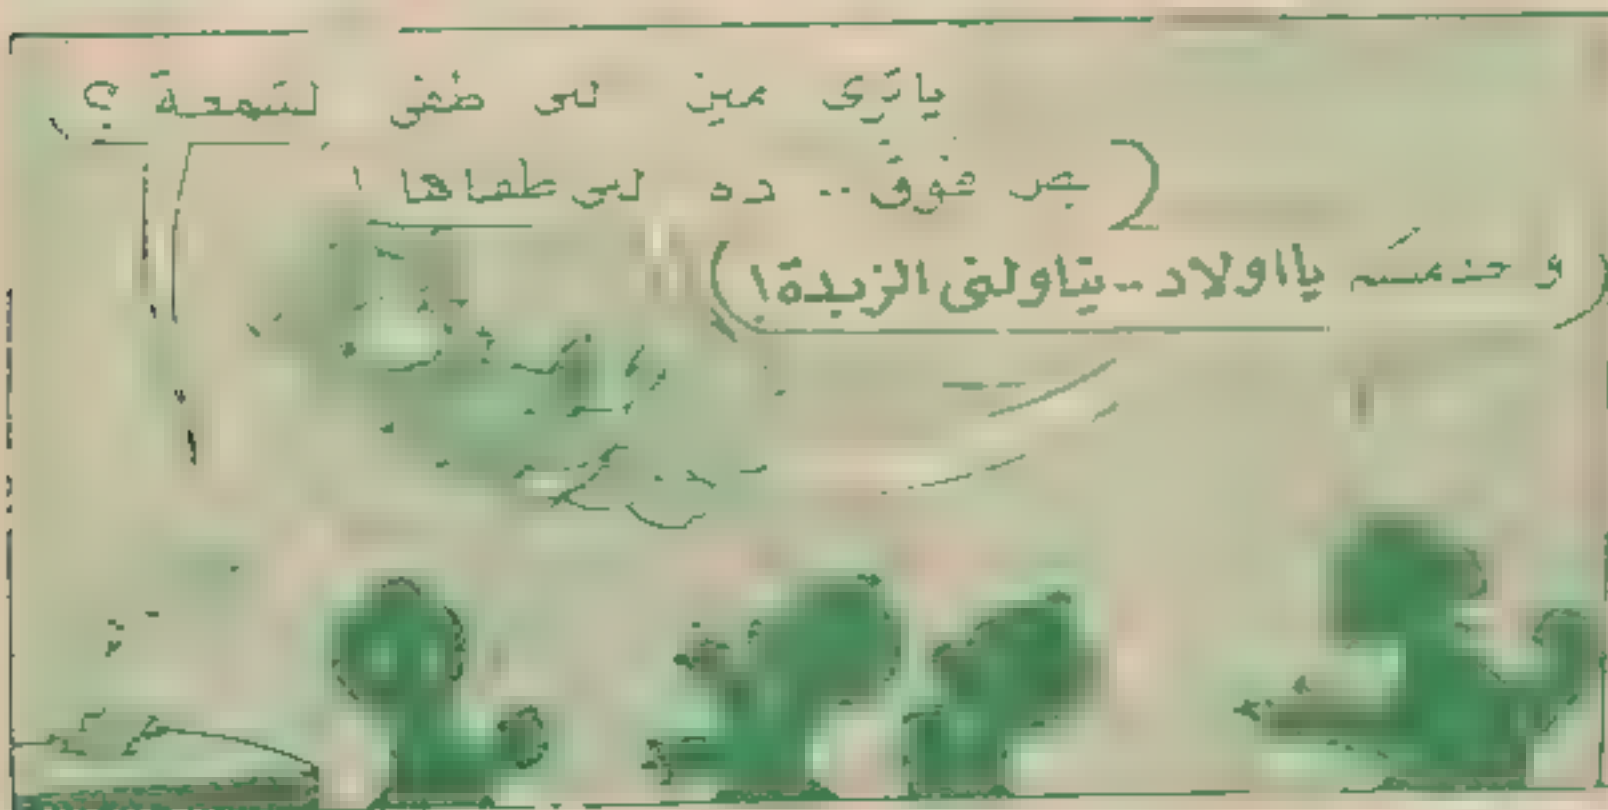 ياترى مين للى طفى لشمعة ؟
( بص فوق .. ده للى طفاها !
يااولاد - يتاولنى الزبدة !